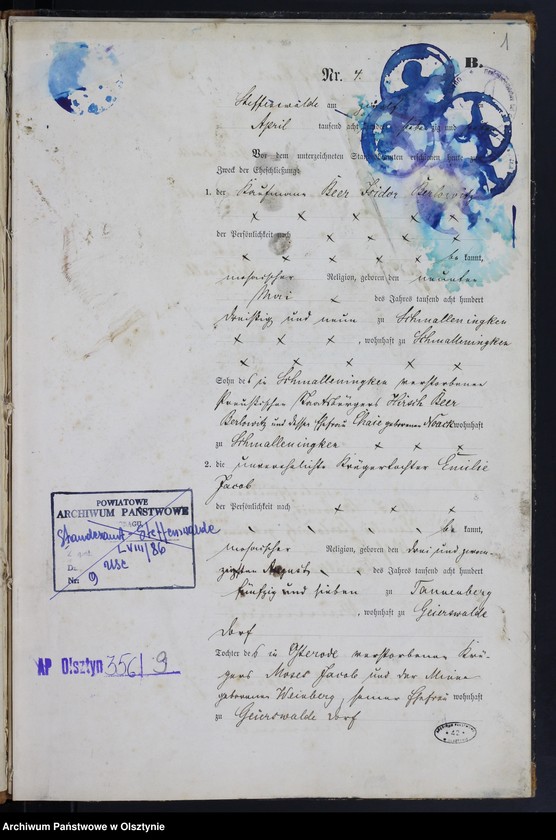 1
B.
Nr. 4.
Steffenswalde am
April tausend acht hundert
Vor dem unterzeichneten Standesbeamten erschienen heute zum
Zweck der Eheschließung:
1. der Kaufmann Beer Isidor Berlowitz
der Persönlichkeit nach
be kannt,
mosaischer Religion, geboren den neunten
Mai des Jahres tausend acht hundert
dreißig und neun zu Schmalleningken
, wohnhaft zu Schmalleningken
Sohn des in Schmalleningken verstorbenen
Preußischen Staatsbürgers Hirsch Beer
Berlowitz und dessen Ehefrau Chaie geborenen Noack wohnhaft
zu Schmalleningken
2. die unverehelichte Krügertochter Emilie
Jacob
der Persönlichkeit nach
be kannt,
mosaischer Religion, geboren den drei und zwan-
zigsten August des Jahres tausend acht hundert
fünfzig und sieben zu Tannenberg
, wohnhaft zu Geierswalde
Dorf
Tochter des in Osterode verstorbenen Krü-
gers Moses Jacob und der Minna
geborenen Weinberg, seiner Ehefrau wohnhaft
zu Geierswalde Dorf
POWIATOWE
ARCHIWUM PAŃSTWOWE
Standesamt Steffenswalde
LVIII/86
USC
Nr: 9
AP Olsztyn 356/9
42
Archiwum Państwowe w Olsztynie